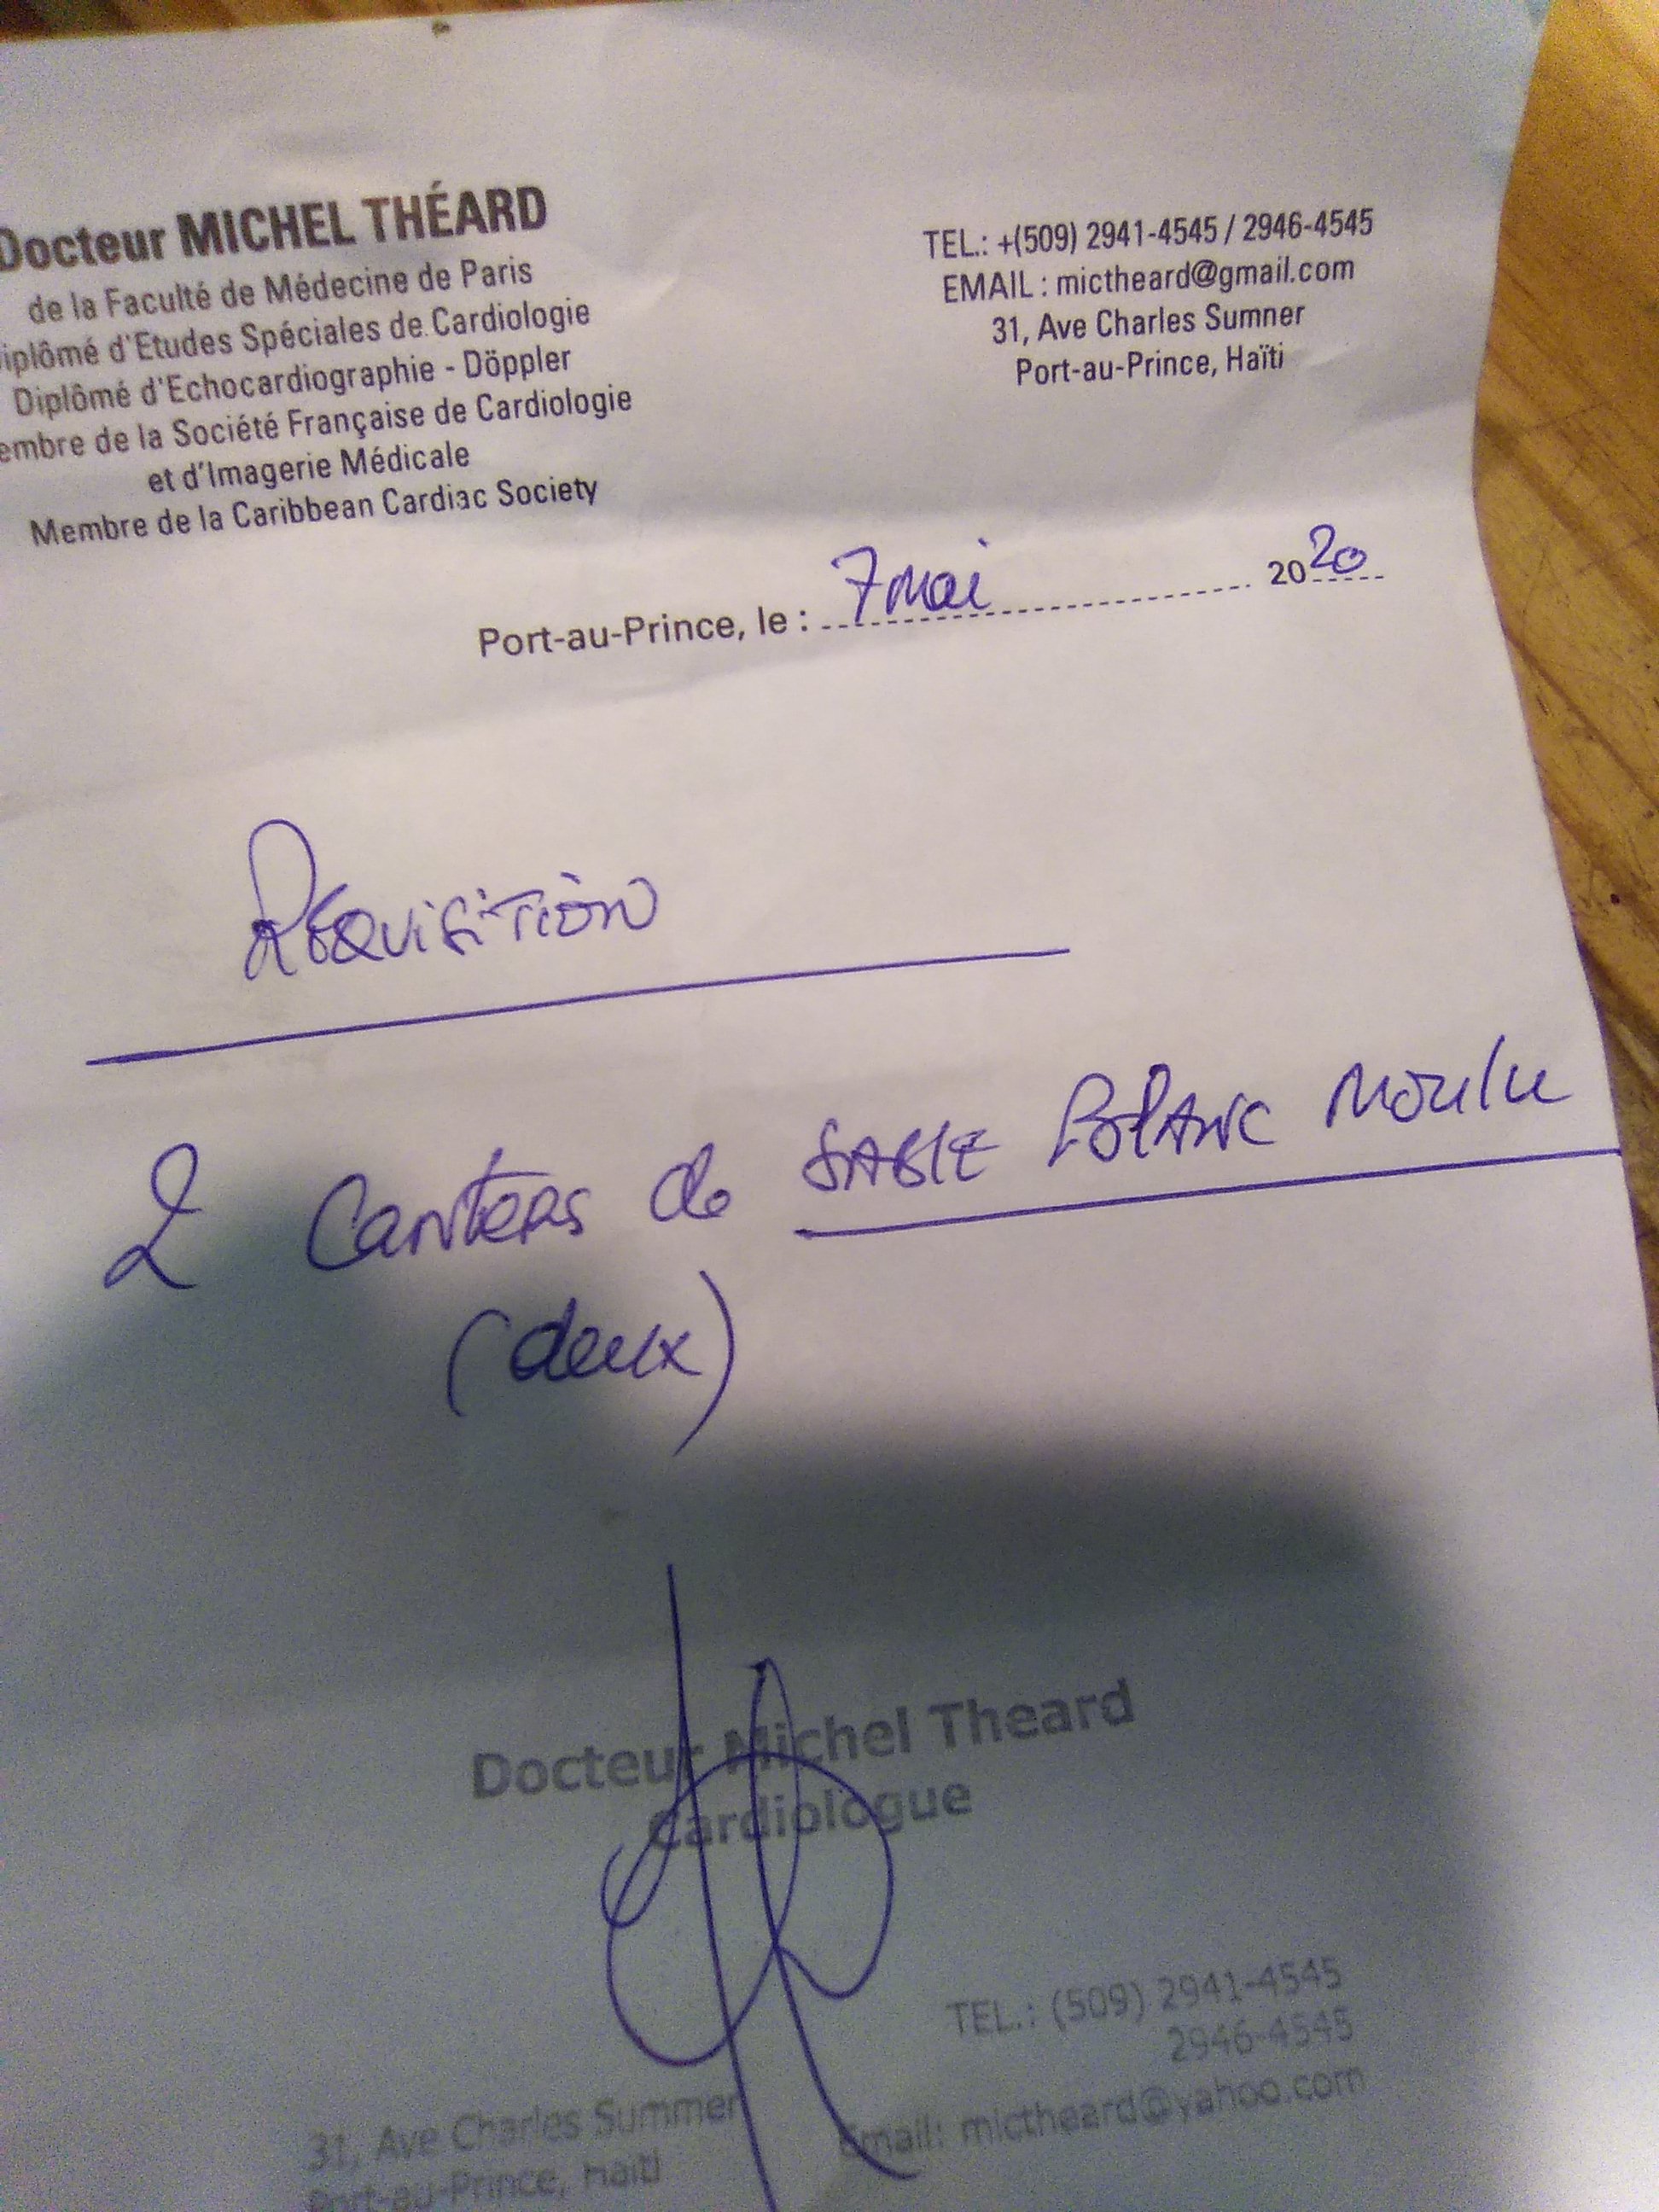 Docteur MICHEL THÉARD
de la Faculté de Médecine de Paris
iplômé d'Etudes Spéciales de Cardiologie
Diplômé d'Echocardiographie - Döppler
embre de la Société Française de Cardiologie
et d'Imagerie Médicale
Membre de la Caribbean Cardiac Society
TEL.: +(509) 2941-4545 / 2946-4545
EMAIL : mictheard@gmail.com
31, Ave Charles Sumner
Port-au-Prince, Haïti
Port-au-Prince, le : 7 mai 2020
Réquisition
2 Canters de SABLE BLANC Moulu
(deux)
Docteur Michel Theard
Cardiologue
TEL.: (509) 2941-4545
2946-4545
Email: mictheard@yahoo.com
31, Ave Charles Summer
Port-au-Prince, Haiti